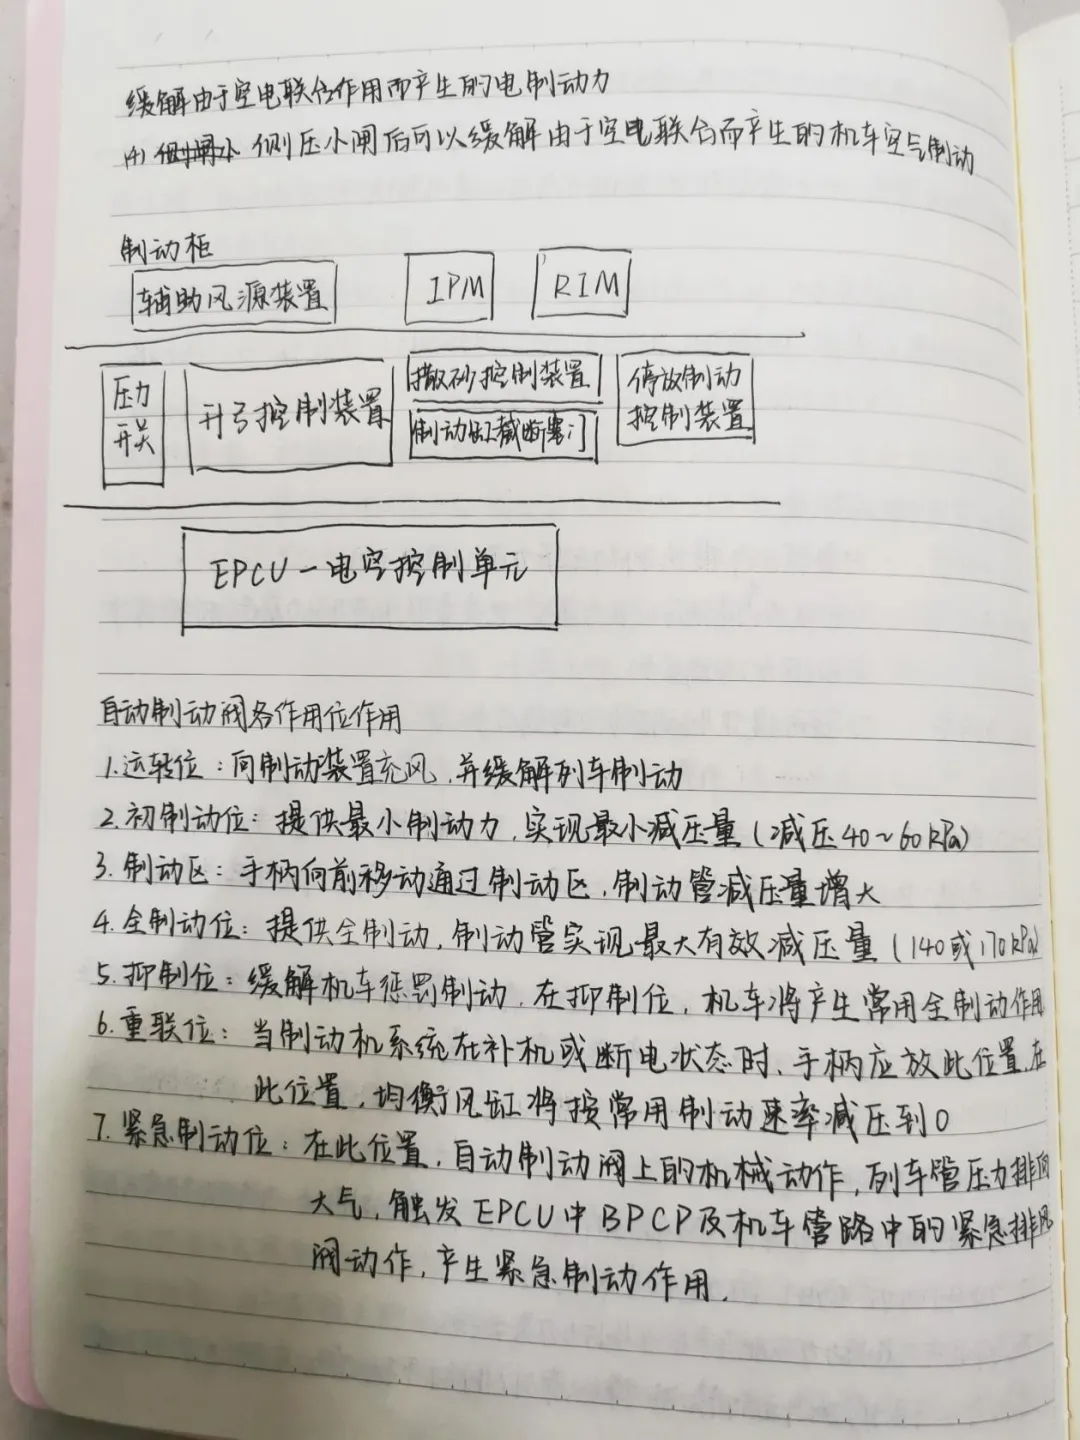 缓解由于空电联合作用而产生的电制动力
(4) 侧压小闸后可以缓解由于空电联合而产生的机车空气制动
制动柜
辅助风源装置 IPM RIM
压力开关 升弓控制装置 撒砂控制装置 停放制动控制装置
制动缸截断塞门
EPCU-电空控制单元
自动制动阀各作用位作用
1.运转位：向制动装置充风，并缓解列车制动
2.初制动位：提供最小制动力，实现最小减压量（减压40~60kPa）
3.制动区：手柄向前移动通过制动区，制动管减压量增大
4.全制动位：提供全制动，制动管实现最大有效减压量（140或170kPa）
5.抑制位：缓解机车惩罚制动，在抑制位，机车将产生常用全制动作用
6.重联位：当制动机系统在补机或断电状态时，手柄应放此位置，在
此位置，均衡风缸将按常用制动速率减压到0
7.紧急制动位：在此位置，自动制动阀上的机械动作，列车管压力排向
大气，触发EPCU中BPCP及机车管路中的紧急排风
阀动作，产生紧急制动作用．